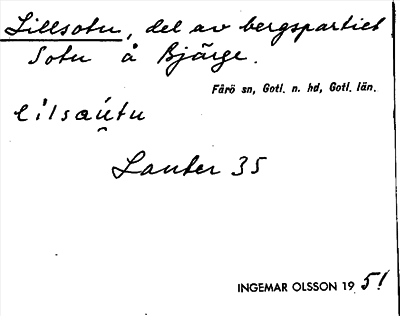 Lillsotu, del av bergspartiet
Sotu å Bjärge.
Fårö sn, Gotl. n. hd, Gotl. län.
lilsáu̯tu
Lauter 35
INGEMAR OLSSON 1951